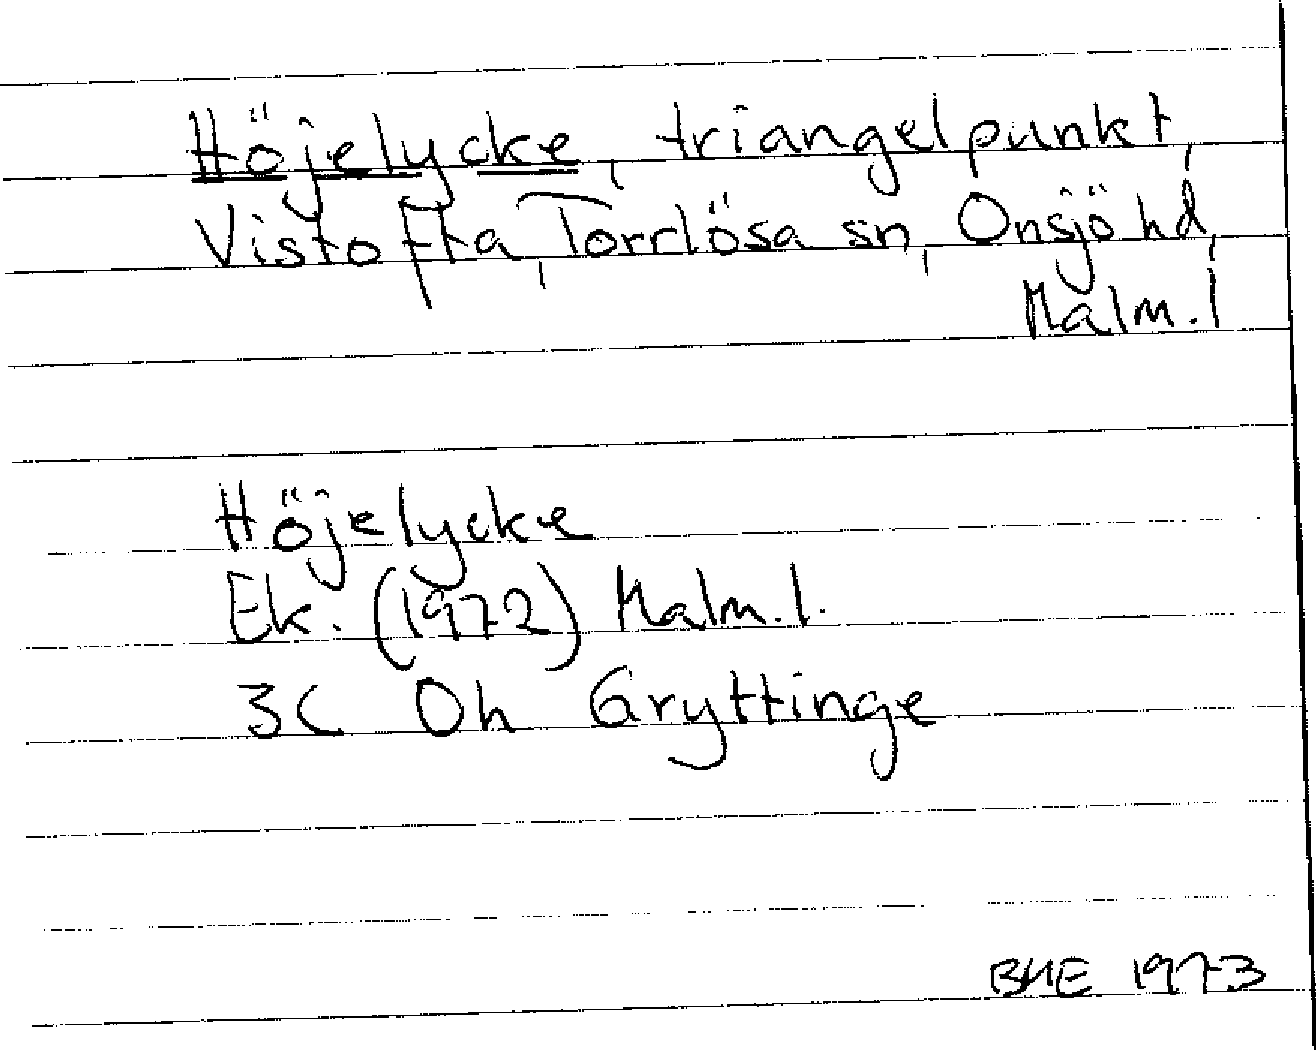 Höjelycke, triangelpunkt,
Vistofta, Torrlösa sn, Onsjö hd,
Malm.l
Höjelycke
Ek. (1972) Malm.l.
3C 0h Gryttinge
BHE 1973